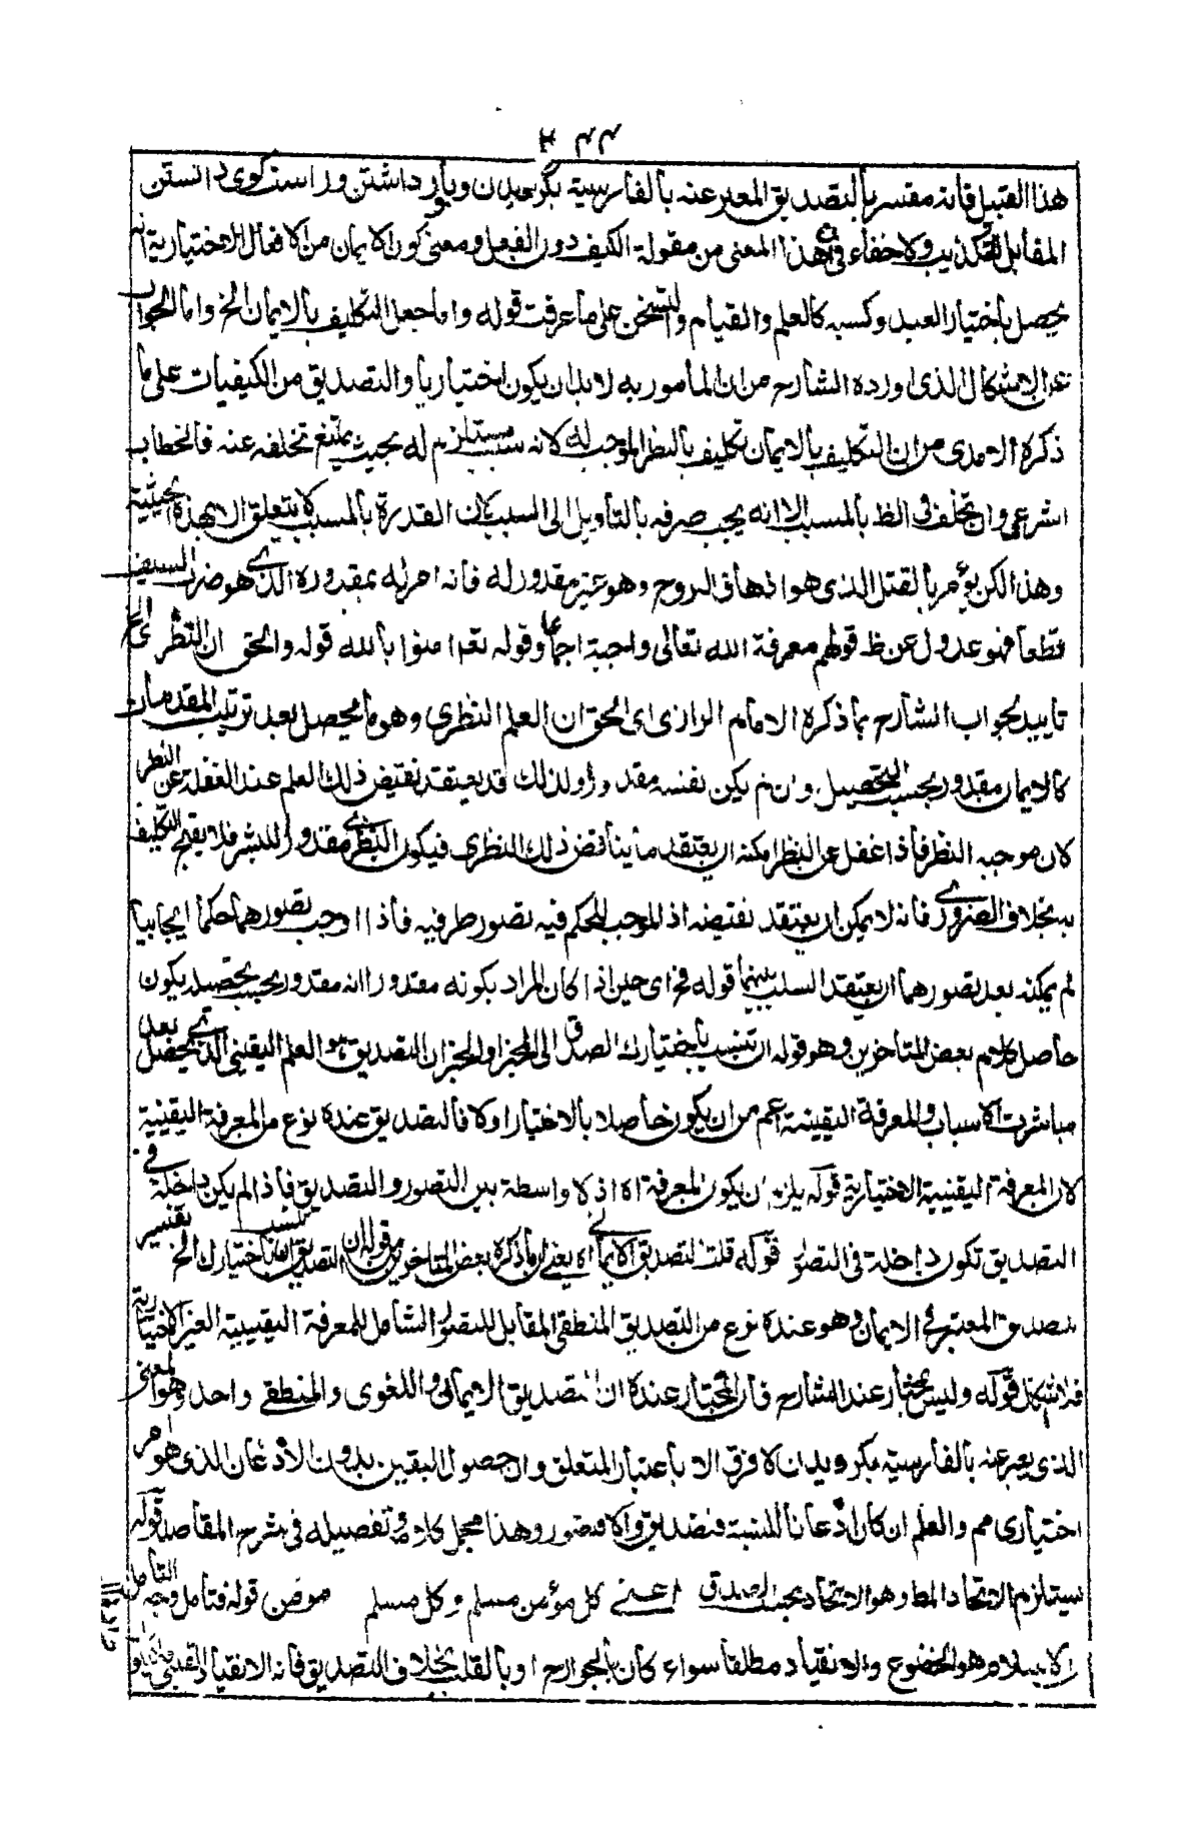 ٣٤٤
هذا القبيل فانه مفسر بالتصديق المعبر عنه بالفارسية بگرويدن وباور داشتن وراست كوى دانستن
المقابل للتكذيب ولا خفاء فى ان هذا المعنى من مقولة الكيف دون الفعل ومعنى كون الايمان من الافعال الاختيارية انه
يحصل باختيار العبد وكسبه كالعلم والقيام والتسخن على ما عرفت قوله واما جعل التكليف بالايمان الخ واما الجواب
عن الاشكال الذى اورده الشارح من ان المأمور به لا بد ان يكون اختياريا والتصديق من الكيفيات على ما
ذكره الامدى من ان التكليف بالايمان تكليف بالنظر الموجب له لانه سبب مستلزم له بحيث يمتنع تخلفه عنه فالخطاب
الشرعى وان تخلف فى الظ بالمسبب الا انه يجب صرفه بالتأويل الى السبب لان القدرة بالمسبب لا يتعلق الا بهذه الحيثية
وهذا الكن يؤمر بالقتل الذى هو ازهاق الروح وهو غير مقدور له فانه امر له بمقدوره الذى هو ضرب السيف
قطعا فهو عدول عن ظ قولهم معرفة الله تعالى واجبة اجماعا وقوله تعم امنوا بالله قوله والحق ان النظرى الخ
تاييد لجواب الشارح بما ذكره الامام الرازى اى الحق ان العلم النظرى وهو ما يحصل بعد ترتيب المقدمات
كالايمان مقدور بحسب التحصيل وان لم يكن نفسه مقدورا ولذلك قد يعتقد نقيض ذلك العلم عند الغفلة عن النظر
لان موجبه النظر فاذا غفل عن النظر امكنه ان يعتقد ما يناقض ذلك النظرى فيكون النظرى مقدورا للبشر فلا يقبح التكليف
به بخلاف الضرورى فانه لا يمكن ان يعتقد نقيضه اذ الموجب للحكم فيه تصور طرفيه فاذا اوجب تصورهما حكما ايجابيا
لم يمكنه بعد تصورهما ان يعتقد السلب بينهما قوله فح اى حين اذا كان المراد بكونه مقدورا انه مقدور بحسب تحصيله يكون
حاصل كلام بعض المتاخرين وهو قوله ان تنسب باختيارك الصدق الى المخبر او الخبر ان التصديق هو العلم اليقينى الذى يحصل بعد
مباشرت الاسباب والمعرفة اليقينية اعم من ان يكون حاصلا بالاختيار اولا فالتصديق عنده نوع من المعرفة اليقينية
لان المعرفة اليقينية الاختيارية قوله يلزم ان يكون المعرفة اه اذ لا واسطة بين التصور والتصديق فاذا لم يكن داخلة فى
التصديق تكون داخلة فى التصور قوله قلت التصديق الايمانى اه يعنى ان ما ذكره بعض المتاخرين من قوله ان تنسب باختيارك الخ تفسير
للتصديق المعتبر فى الايمان وهو عنده نوع من التصديق المنطقى المقابل للتصور الشامل للمعرفة اليقينية الغير الاختيارية
فلا اشكال قوله وليس بمختار عند الشارح فان المختار عنده ان التصديق الايمانى واللغوى والمنطقى واحد وهو المعنى
الذى يعبر عنه بالفارسية بكرويدن لا فرق الا باعتبار المتعلق وان حصول اليقين بدون الاذعان الذى هو امر
اختيارى مم والعلم ان كان اذعانا للنسبة فتصديق والا فتصور وهذا مجمل كلامه وتفصيله فى شرح المقاصد قوله
يستلزم الاتحاد المط وهو الاتحاد بحسب الصدق اعنى كل مؤمن مسلم وكل مسلم مومن قوله فتامل وجه التأمل
الاسلام هو الخضوع والانقياد مطلقا سواء كان بالجوارح او بالقلب بخلاف التصديق فانه الانقياد القلبى